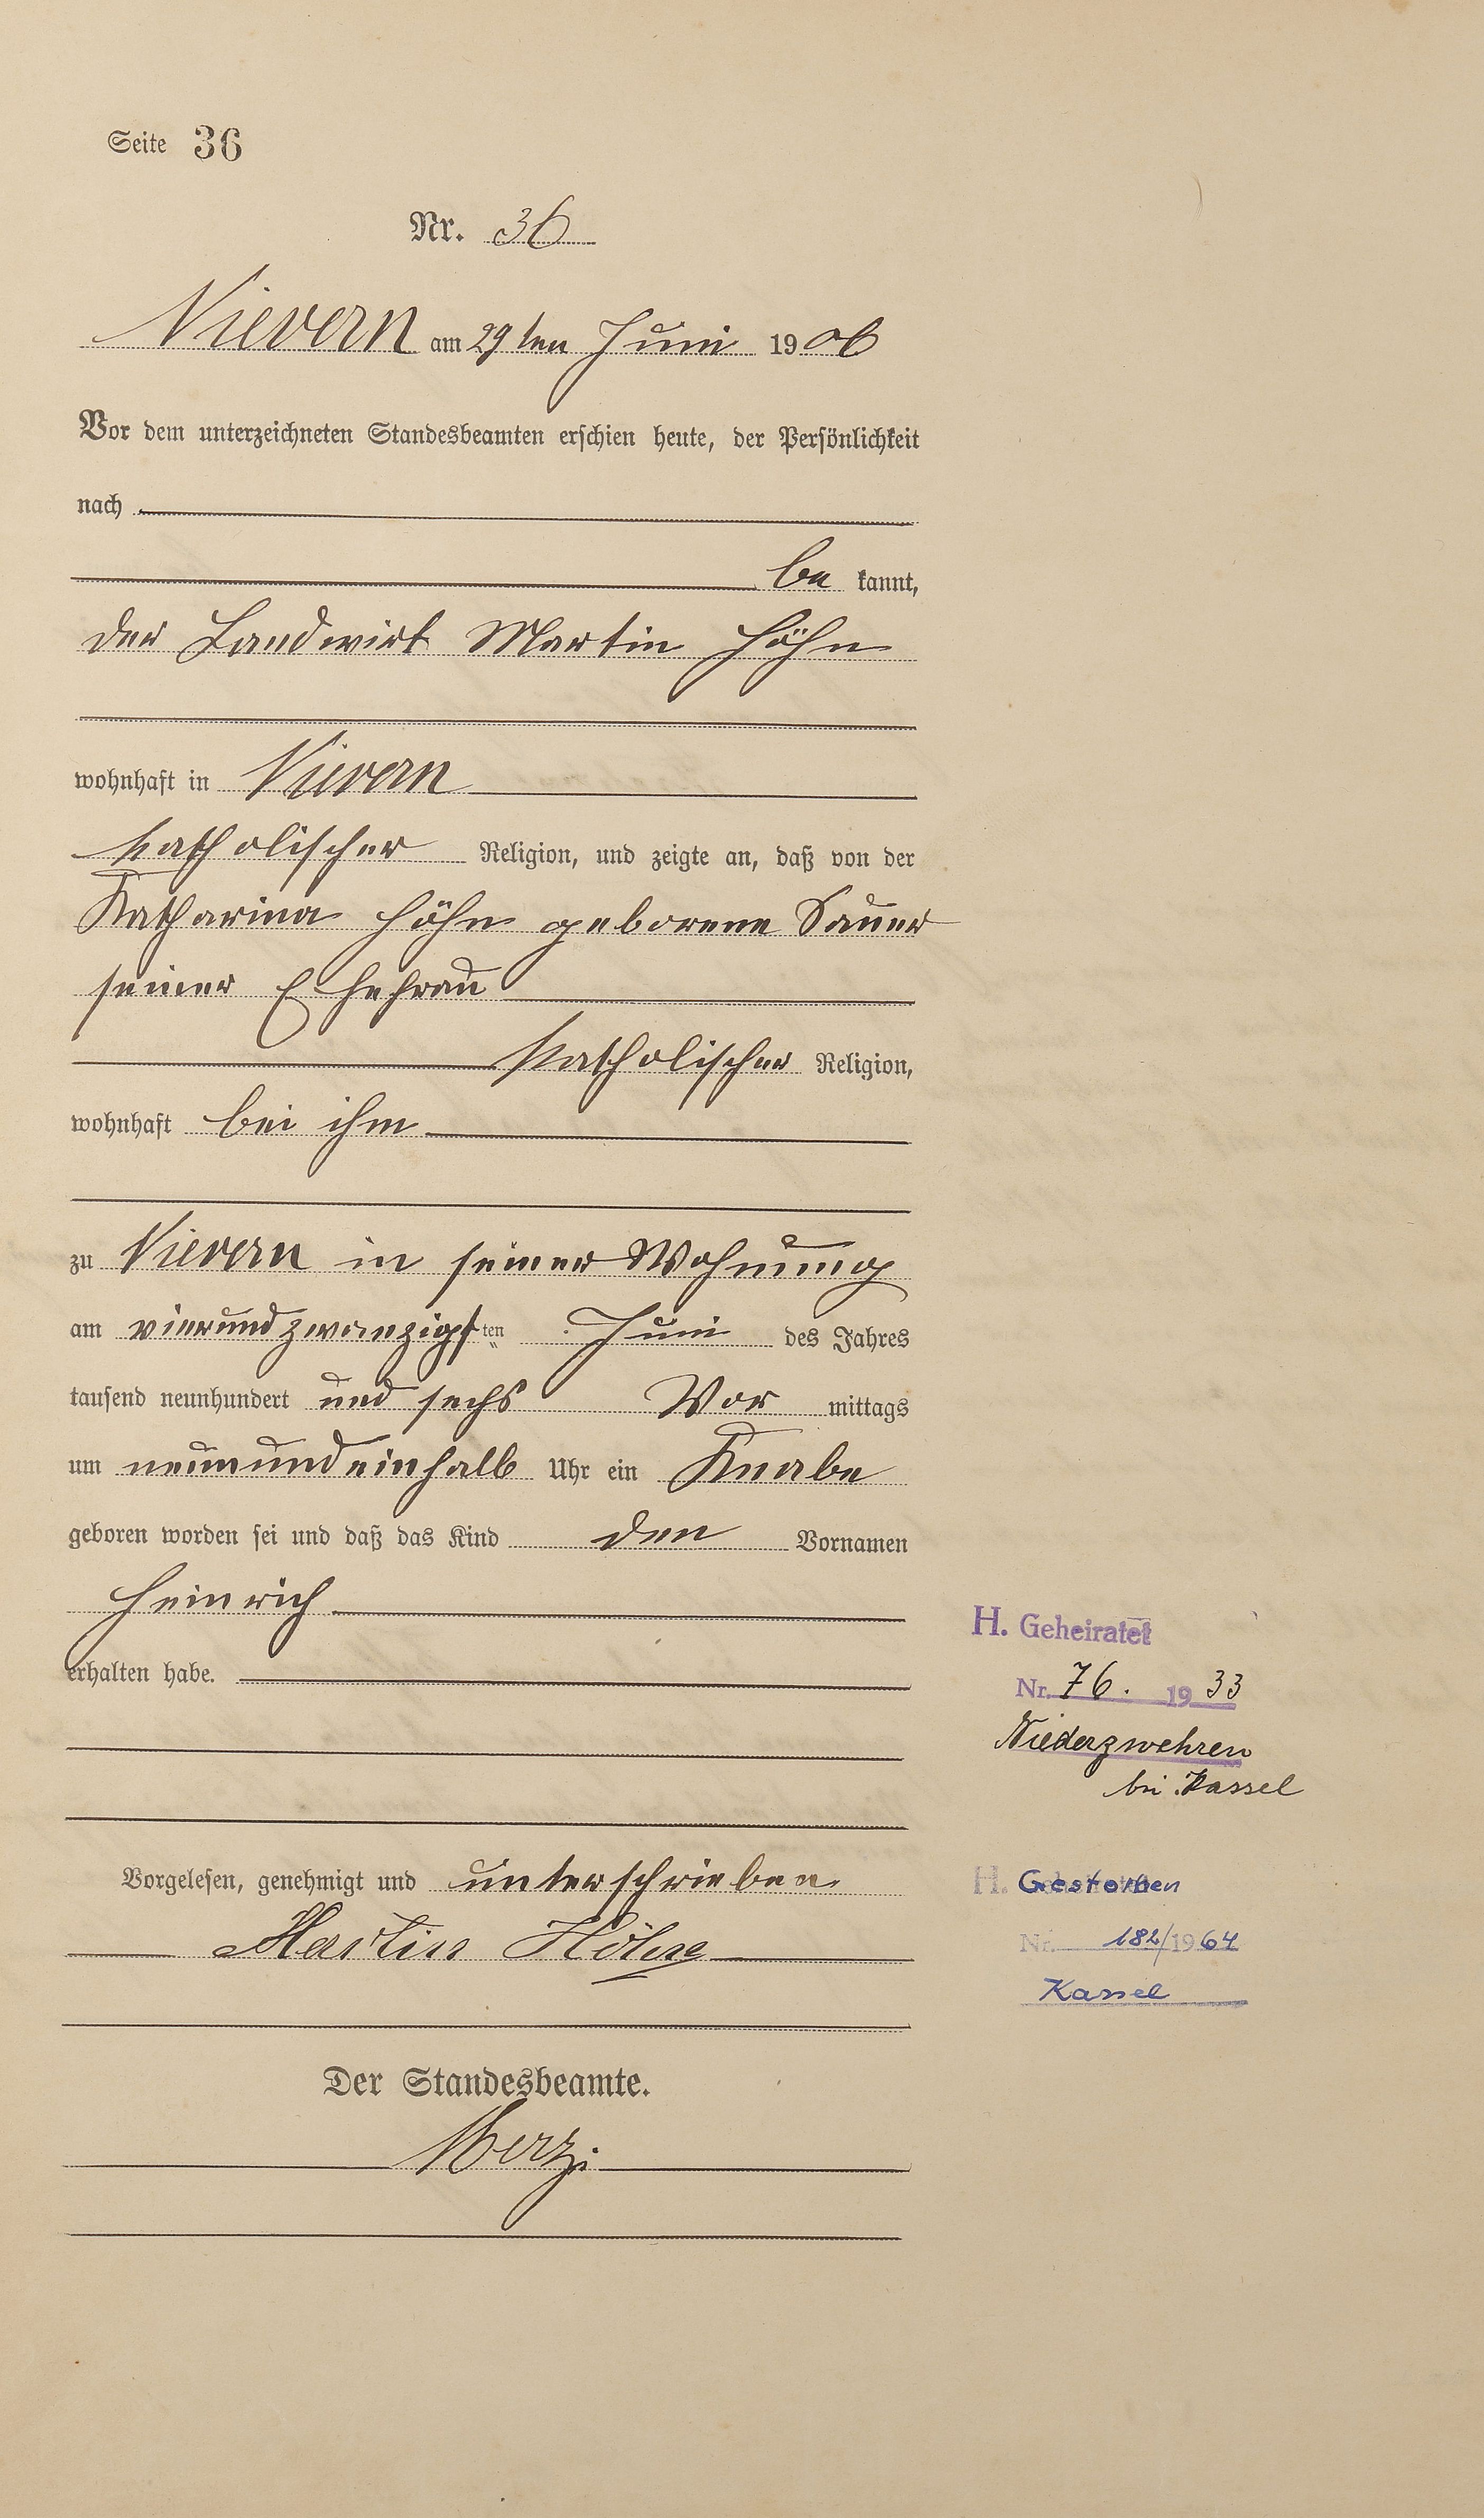 Seite 36
Nr. 36
Nievern am 29ten Juni 1906
Vor dem unterzeichneten Standesbeamten erschien heute, der Persönlichkeit
nach
be kannt,
der Landwirt Martin Höhn
wohnhaft in Nievern
katholischer Religion, und zeigte an, daß von der
Katharina Höhn geborene Sauer
seiner Ehefrau
katholischer Religion,
wohnhaft bei ihm
zu Nievern in seiner Wohnung
am vierundzwanzigsten Juni des Jahres
tausend neunhundert und sechs Vor mittags
um neunundeinhalb Uhr ein Knabe
geboren worden sei und daß das Kind den Vornamen
Heinrich
erhalten habe.
Vorgelesen, genehmigt und unterschrieben
Martin Höhn
Der Standesbeamte.
H. Geheiratet
Nr. 76. 1933
Niederzwehren
bei Kassel
H. Gestorben
Nr. 182/1964
Kassel